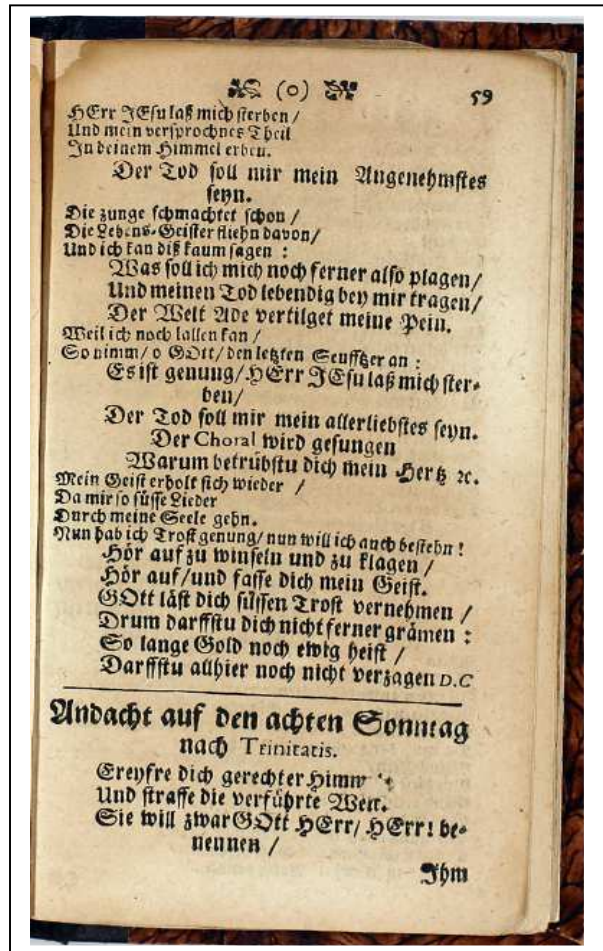 (o) 59
HErr JEsu laß mich sterben /
Und mein versprochnes Theil
In deinem Himmel erben.
Der Tod soll mir mein Angenehmstes
seyn.
Die zunge schmachtet schon /
Die Lebens-Geister fliehn davon /
Und ich kan diß kaum sagen :
Was soll ich mich noch ferner also plagen /
Und meinen Tod lebendig bey mir tragen /
Der Welt Ade vertilget meine Pein.
Weil ich noch lallen kan /
So nimm / o GOtt / den letzten Seufftzer an :
Es ist genung / HErr JEsu laß mich ster-
ben /
Der Tod soll mir mein allerliebstes seyn.
Der Choral wird gesungen
Warum betrübstu dich mein Hertz ꝛc.
Mein Geist erholt sich wieder /
Da mir so süsse Lieder
Durch meine Seele gehn.
Nun hab ich Trost genung / nun will ich auch bestehn !
Hör auf zu winseln und zu klagen /
Hör auf / und fasse dich mein Geist.
GOtt läst dich süssen Trost vernehmen /
Drum darffstu dich nicht ferner grämen :
So lange Gold noch ewig heist /
Darffstu allhier noch nicht verzagen D.C
Andacht auf den achten Sonntag
nach Trinitatis.
Ereyfre dich gerechter
Und straffe die verführte Welt.
Sie will zwar GOtt HErr / HErr ! be-
nennen /
Ihm